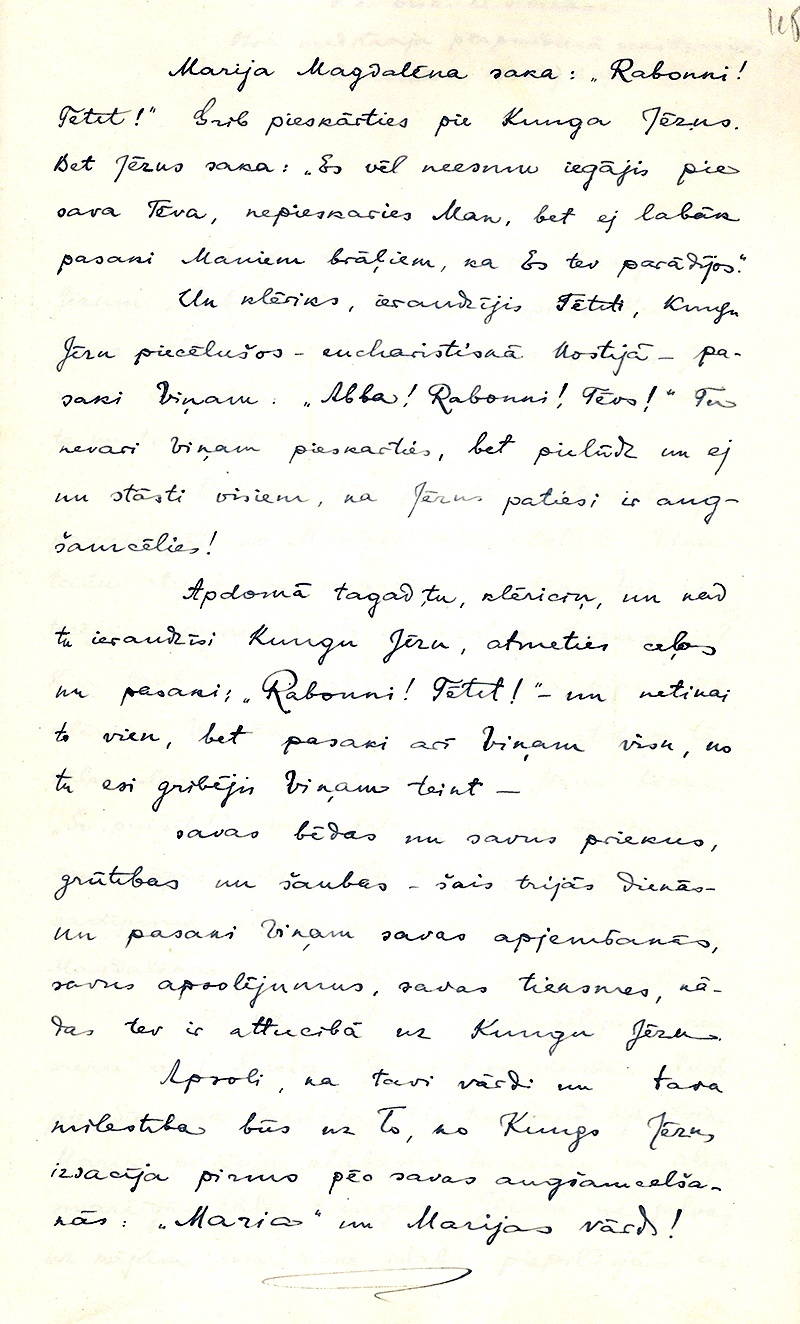 Marija Magdalēna saka: „Rabonni!
Tētīt!" Grib pieskārties pie Kunga Jēzus.
Bet Jēzus saka: „Es vēl neesmu iegājis pie
sava Tēva, nepieskaries Man, bet ej labāk
pasaki Maniem brāļiem, ka Es tev parādījos."
Un klēriks, ieraudzījis Tētīti, Kungu
Jēzu piecēlušos - eucharistiskā Hostijā - pa-
saki Viņam: „Abba! Rabonni! Tēvs!" Tu
nevari Viņam pieskarties, bet pielūdz un ej
un stāsti visiem, ka Jēzus patiesi ir aug-
šamcēlies!
Apdomā tagad tu, klēriciņ, un kad
tu ieraudzīsi Kungu Jēzu, atmeties ceļos
un pasaki: „Rabonni! Tētīt!" - un netikai
to vien, bet pasaki arī Viņam visu, ko
tu esi gribējis Viņam teikt —
savas bēdas un savus priekus,
grūtības un šaubas - šais trijās dienās -
un pasaki Viņam savas apjemšanās,
savus apsolījumus, savas tieksmes, kā-
das tev ir attiecībā uz Kungu Jēzu.
Apsoli, ka tavi vārdi un tava
mīlestība būs uz To, ko Kungs Jēzus
izsacīja pirmo pēc savas augšamcelša-
nās: „Maria" un Marijas vārds!